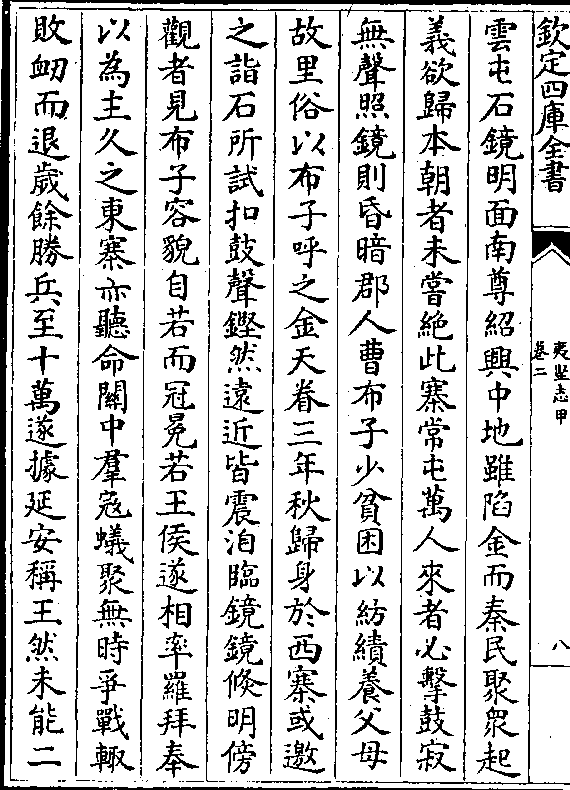 欽定四庫全書
夷堅志甲
卷二
八
雲屯石鏡明面南尊紹興中地雖陷金而秦民聚衆起
義欲歸本朝者未嘗絶此寨常屯萬人來者必擊鼓寂
無聲照鏡則昏暗郡人曹布子少貧困以紡績養父母
故里俗以布子呼之金天眷三年秋歸身於西寨或邀
之詣石所試扣鼓聲鏗然遠近皆震洎臨鏡鏡倐明傍
觀者見布子容貌自若而冠冕若王侯遂相率羅拜奉
以為主久之東寨亦聽命關中羣冦蟻聚無時爭戰輙
敗衂而退歲餘勝兵至十萬遂據延安稱王然未能二